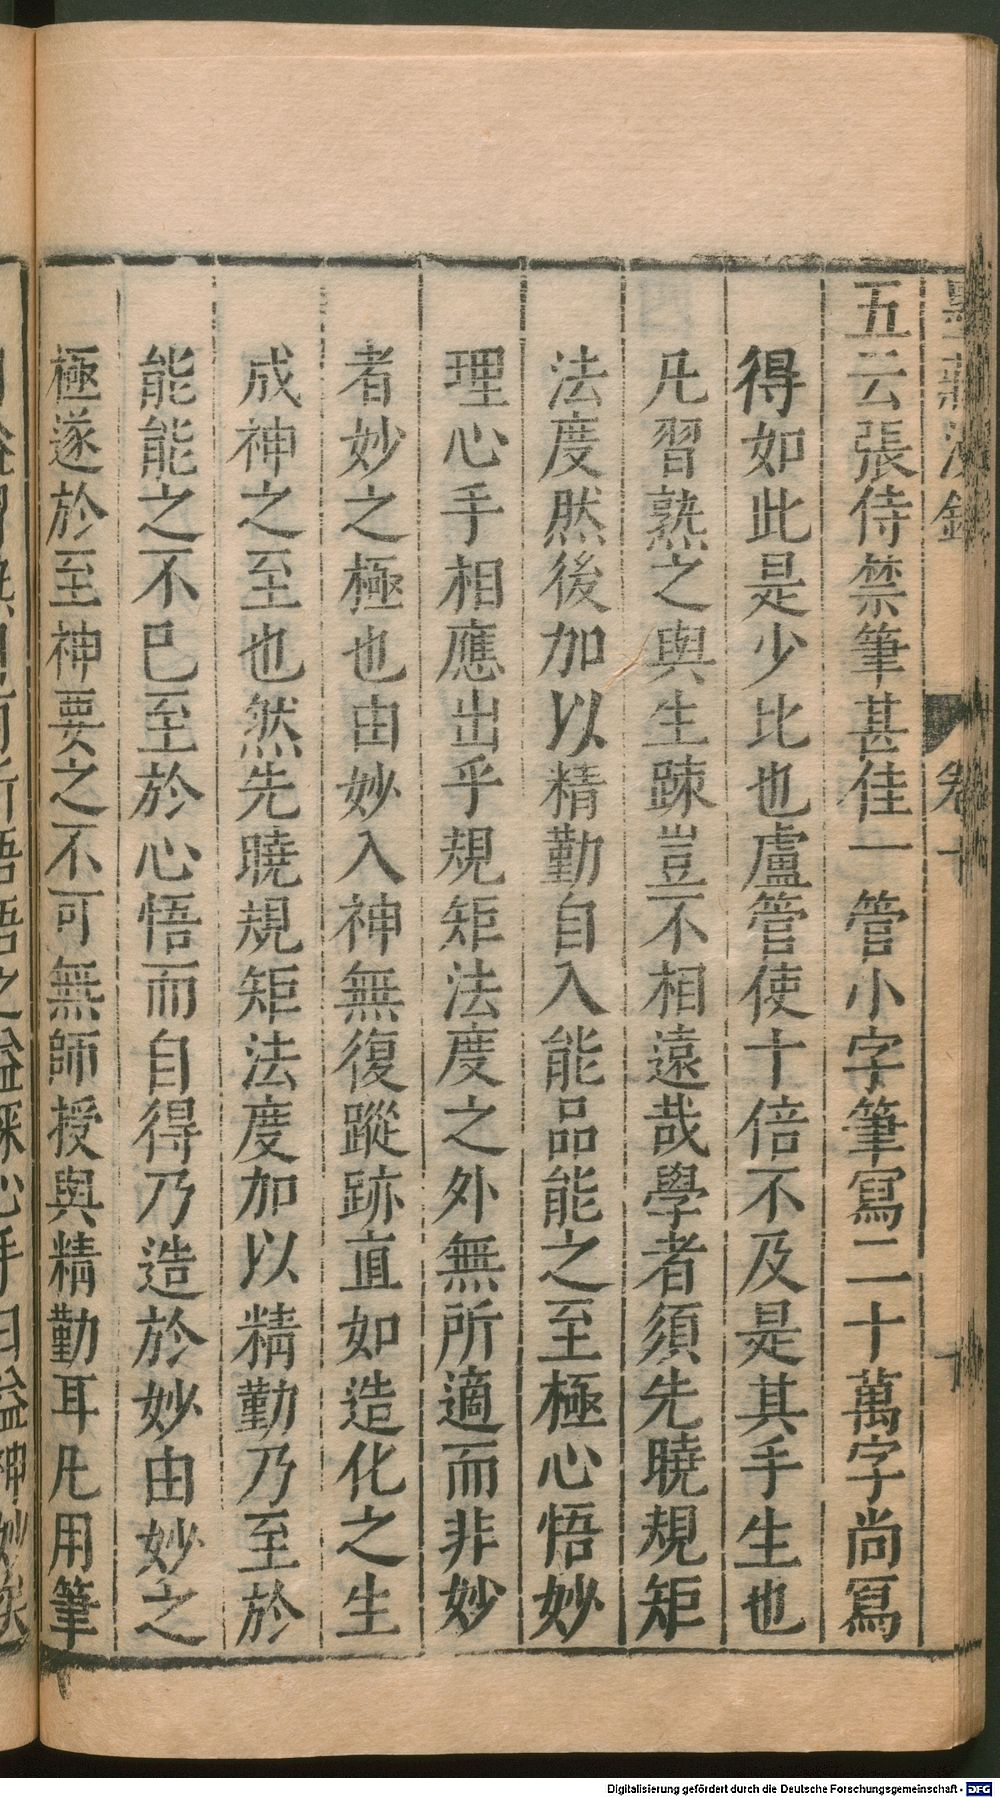 卷十
五云張侍禁筆甚佳一管小字筆寫二十萬字尚寫
得如此是少比也盧管使十倍不及是其手生也
凡習熟之與生踈豈不相遠哉學者須先曉規矩
法度然後加以精勤自入能品能之至極心悟妙
理心手相應出乎規矩法度之外無所適而非妙
者妙之極也由妙入神無復蹤跡直如造化之生
成神之至也然先曉規矩法度加以精勤乃至於
能能之不已至於心悟而自得乃造於妙由妙之
極遂於至神要之不可無師授與精勤耳凡用筆
Digitalisierung gefördert durch die Deutsche Forschungsgemeinschaft - DFG